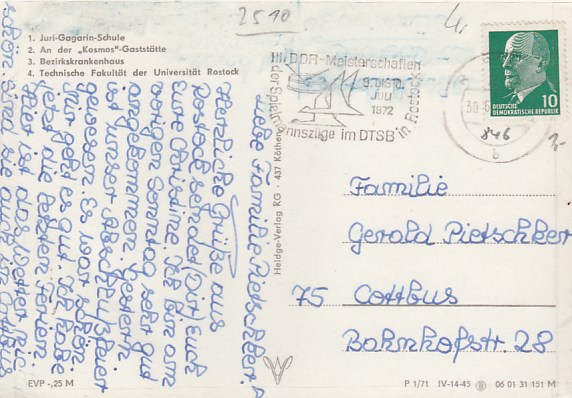 2510
4,-
1. Juri-Gagarin-Schule
2. An der „Kosmos"-Gaststätte
3. Bezirkskrankenhaus
4. Technische Fakultät der Universität Rostock
III. DDR-Meisterschaften
8. BIS 10.
JULI
1972
im DTSB in Rostock
DEUTSCHE
DEMOKRATISCHE REPUBLIK
10
846
b
Liebe Familie Pietschker,
Herzliche Grüße aus
Rostock sendet (Dir) Euch
Eure Christine. Ich bin am
vorigen Sonntag sehr gut
angekommen. Gestern
ist unser Abschlußfeier
gewesen. Es war schön.
Mir geht es gut. Ich habe
jetzt die letzten Ferien.
Hier ist das Wetter
schön. Sind sie auch in Cottbus
Heldge-Verlag KG · 437 Köthen
Familie
Gerold Pietschker
75 Cottbus
Bahnhofstr. 28
EVP -,25 M
P 1/71 IV-14-45 06 01 31 151 M